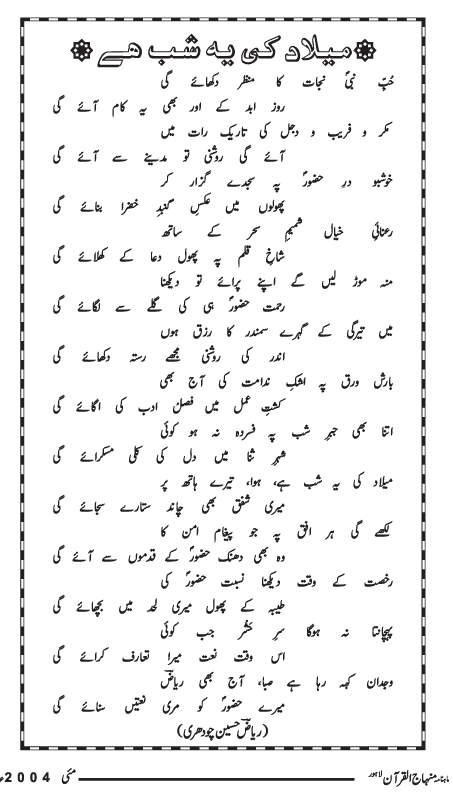 میلاد کی یہ شب ھے
حُبِّ نبیؐ نجات کا منظر دکھائے گی
روز ابد کے اور بھی یہ کام آئے گی
مکر و فریب و دجل کی تاریک رات میں
آئے گی روشنی تو مدینے سے آئے گی
خوشبو درِ حضورؐ پہ سجدے گزار کر
پھولوں میں عکسِ گنبدِ خضرا بنائے گی
رعنائیِ خیال شمیمِ سحر کے ساتھ
شاخِ قلم پہ پھول دعا کے کھلائے گی
منہ موڑ لیں گے اپنے پرائے تو دیکھنا
رحمت حضورؐ ہی کی گلے سے لگائے گی
میں تیرگی کے گہرے سمندر کا رزق ہوں
اندر کی روشنی مجھے رستہ دکھائے گی
بارش ورق پہ اشکِ ندامت کی آج بھی
کشتِ عمل میں فصل ادب کی اگائے گی
اتنا بھی جبرِ شب پہ فسردہ نہ ہو کوئی
شہرِ ثنا میں دل کی کلی مسکرائے گی
میلاد کی یہ شب ہے، ہوا، تیرے ہاتھ پر
میری شفق بھی چاند ستارے سجائے گی
لکھے گی ہر افق پہ جو پیغام امن کا
وہ بھی دھنک حضورؐ کے قدموں سے آئے گی
رخصت کے وقت دیکھنا نسبت حضورؐ کی
طیبہ کے پھول میری لحد میں بچھائے گی
پہچانتا نہ ہوگا سرِ حشر جب کوئی
اس وقت نعت میرا تعارف کرائے گی
وجدان کہہ رہا ہے صبا، آج بھی ریاضؔ
میرے حضورؐ کو مری نعتیں سنائے گی
(ریاضؔ حسین چودھری)
ماہنامہ منہاج القرآن لاہور مئی 2004ء